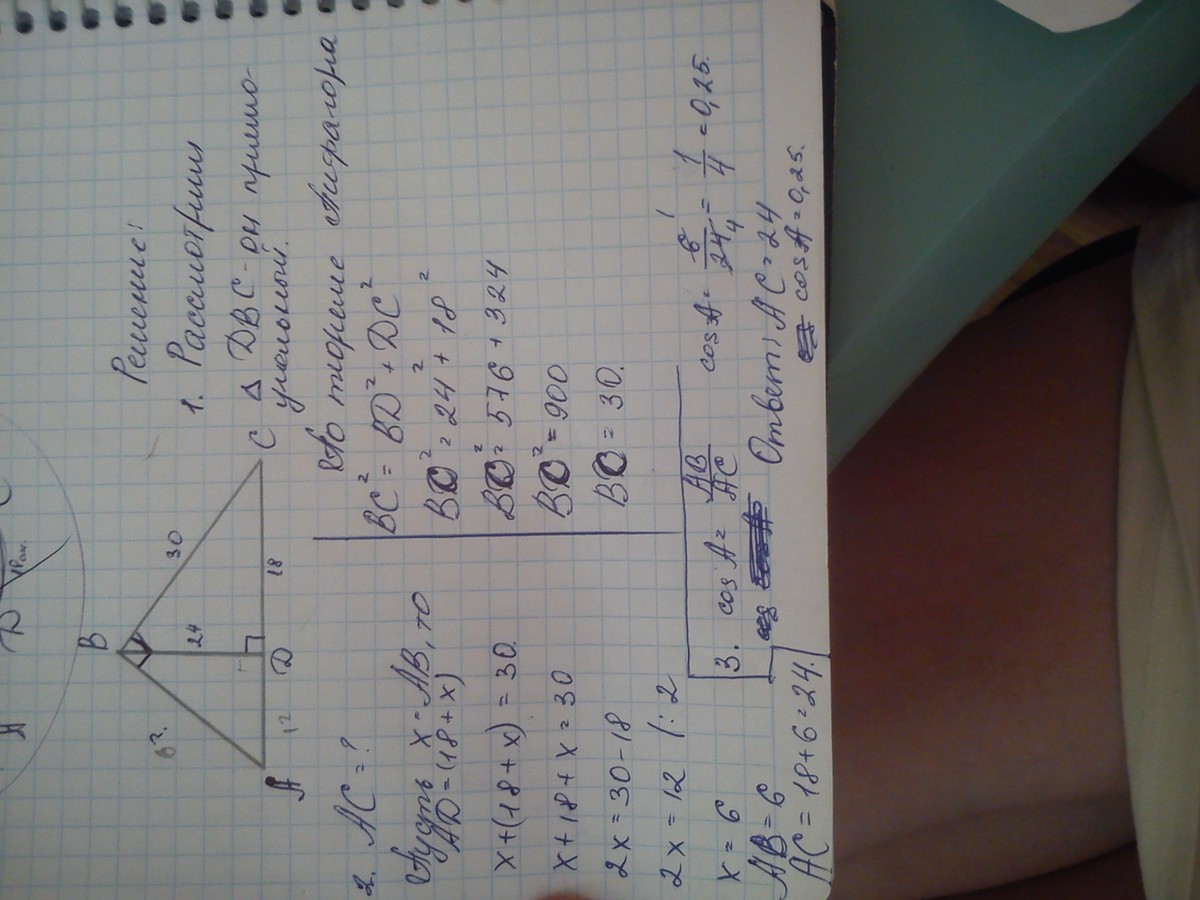 B
6?.
30
24
A
12
D
18
C
Решение:
1. Рассмотрим
Δ DBC - он прямо-
угольный.
По теореме Пифагора
BC² = BD² + DC²
BC² = 24² + 18²
BC² = 576 + 324
BC² = 900
BC = 30.
2. AC = ?
Пусть x - AB, то
AD = (18 + x)
x + (18 + x) = 30.
x + 18 + x = 30
2x = 30 - 18
2x = 12 | : 2
x = 6
AB = 6
AC = 18 + 6 = 24.
3. cos A = AB/AC
cos A = 6/24 = 1/4 = 0,25.
Ответ: AC = 24
cos A = 0,25.